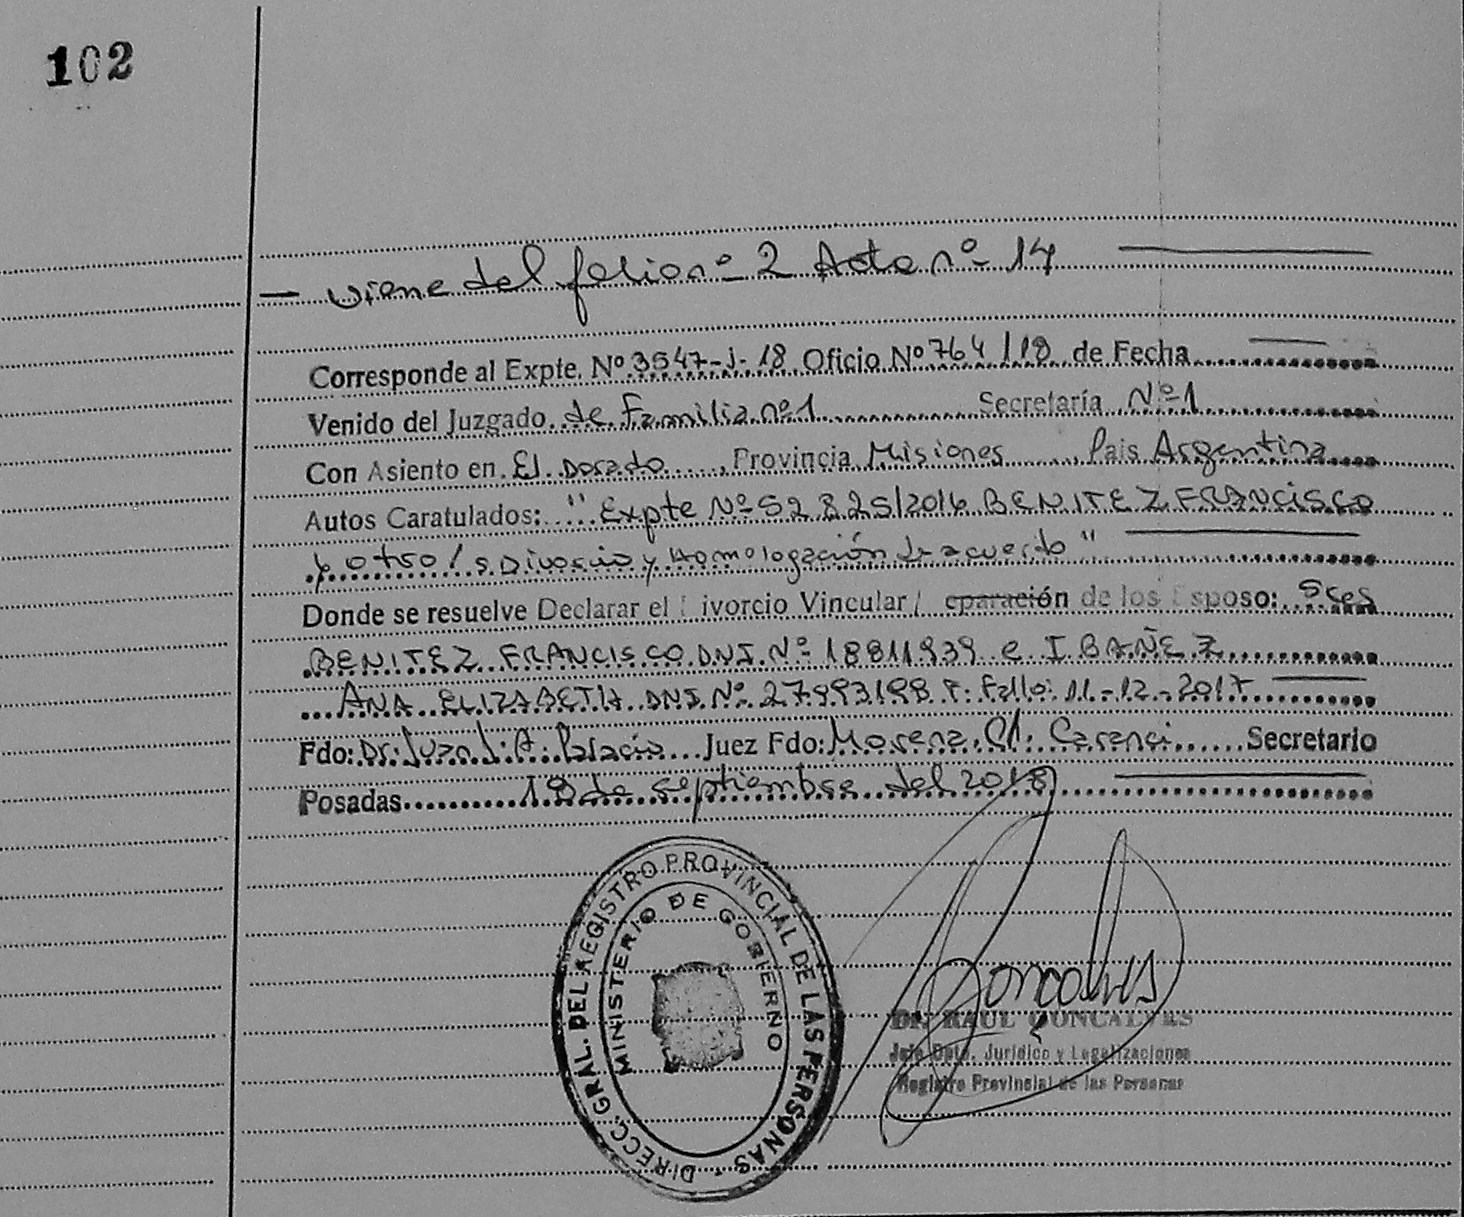 102
— viene del folio nº 2 Acta nº 14
Corresponde al Expte. Nº 3547-J-18 Oficio Nº 764/18 de Fecha
Venido del Juzgado de Familia nº 1 Secretaría Nº 1
Con Asiento en El Dorado, Provincia Misiones, Pais Argentina
Autos Caratulados: "Expte Nº 52825/2016 BENITEZ FRANCISCO
y otro/s Divorcio y Homologación de acuerdo"
Donde se resuelve Declarar el ivorcio Vincular/ eparación de los sposo: Sres
BENITEZ FRANCISCO DNI Nº 18811939 e IBAÑEZ
ANA ELIZABETH DNI Nº 27993198 F. Fallo: 11-12-2017
Fdo: Dr. Juan J. A. Palacio Juez Fdo: Morena Caranci Secretario
Posadas 18 de septiembre del 2018
DIRECC. GRAL. DEL REGISTRO PROVINCIAL DE LAS PERSONAS
MINISTERIO DE GOBIERNO
Goncalves
Dr. RAUL GONCALVES
Jefe Dpto. Jurídico y Legalizaciones
Registro Provincial de las Personas